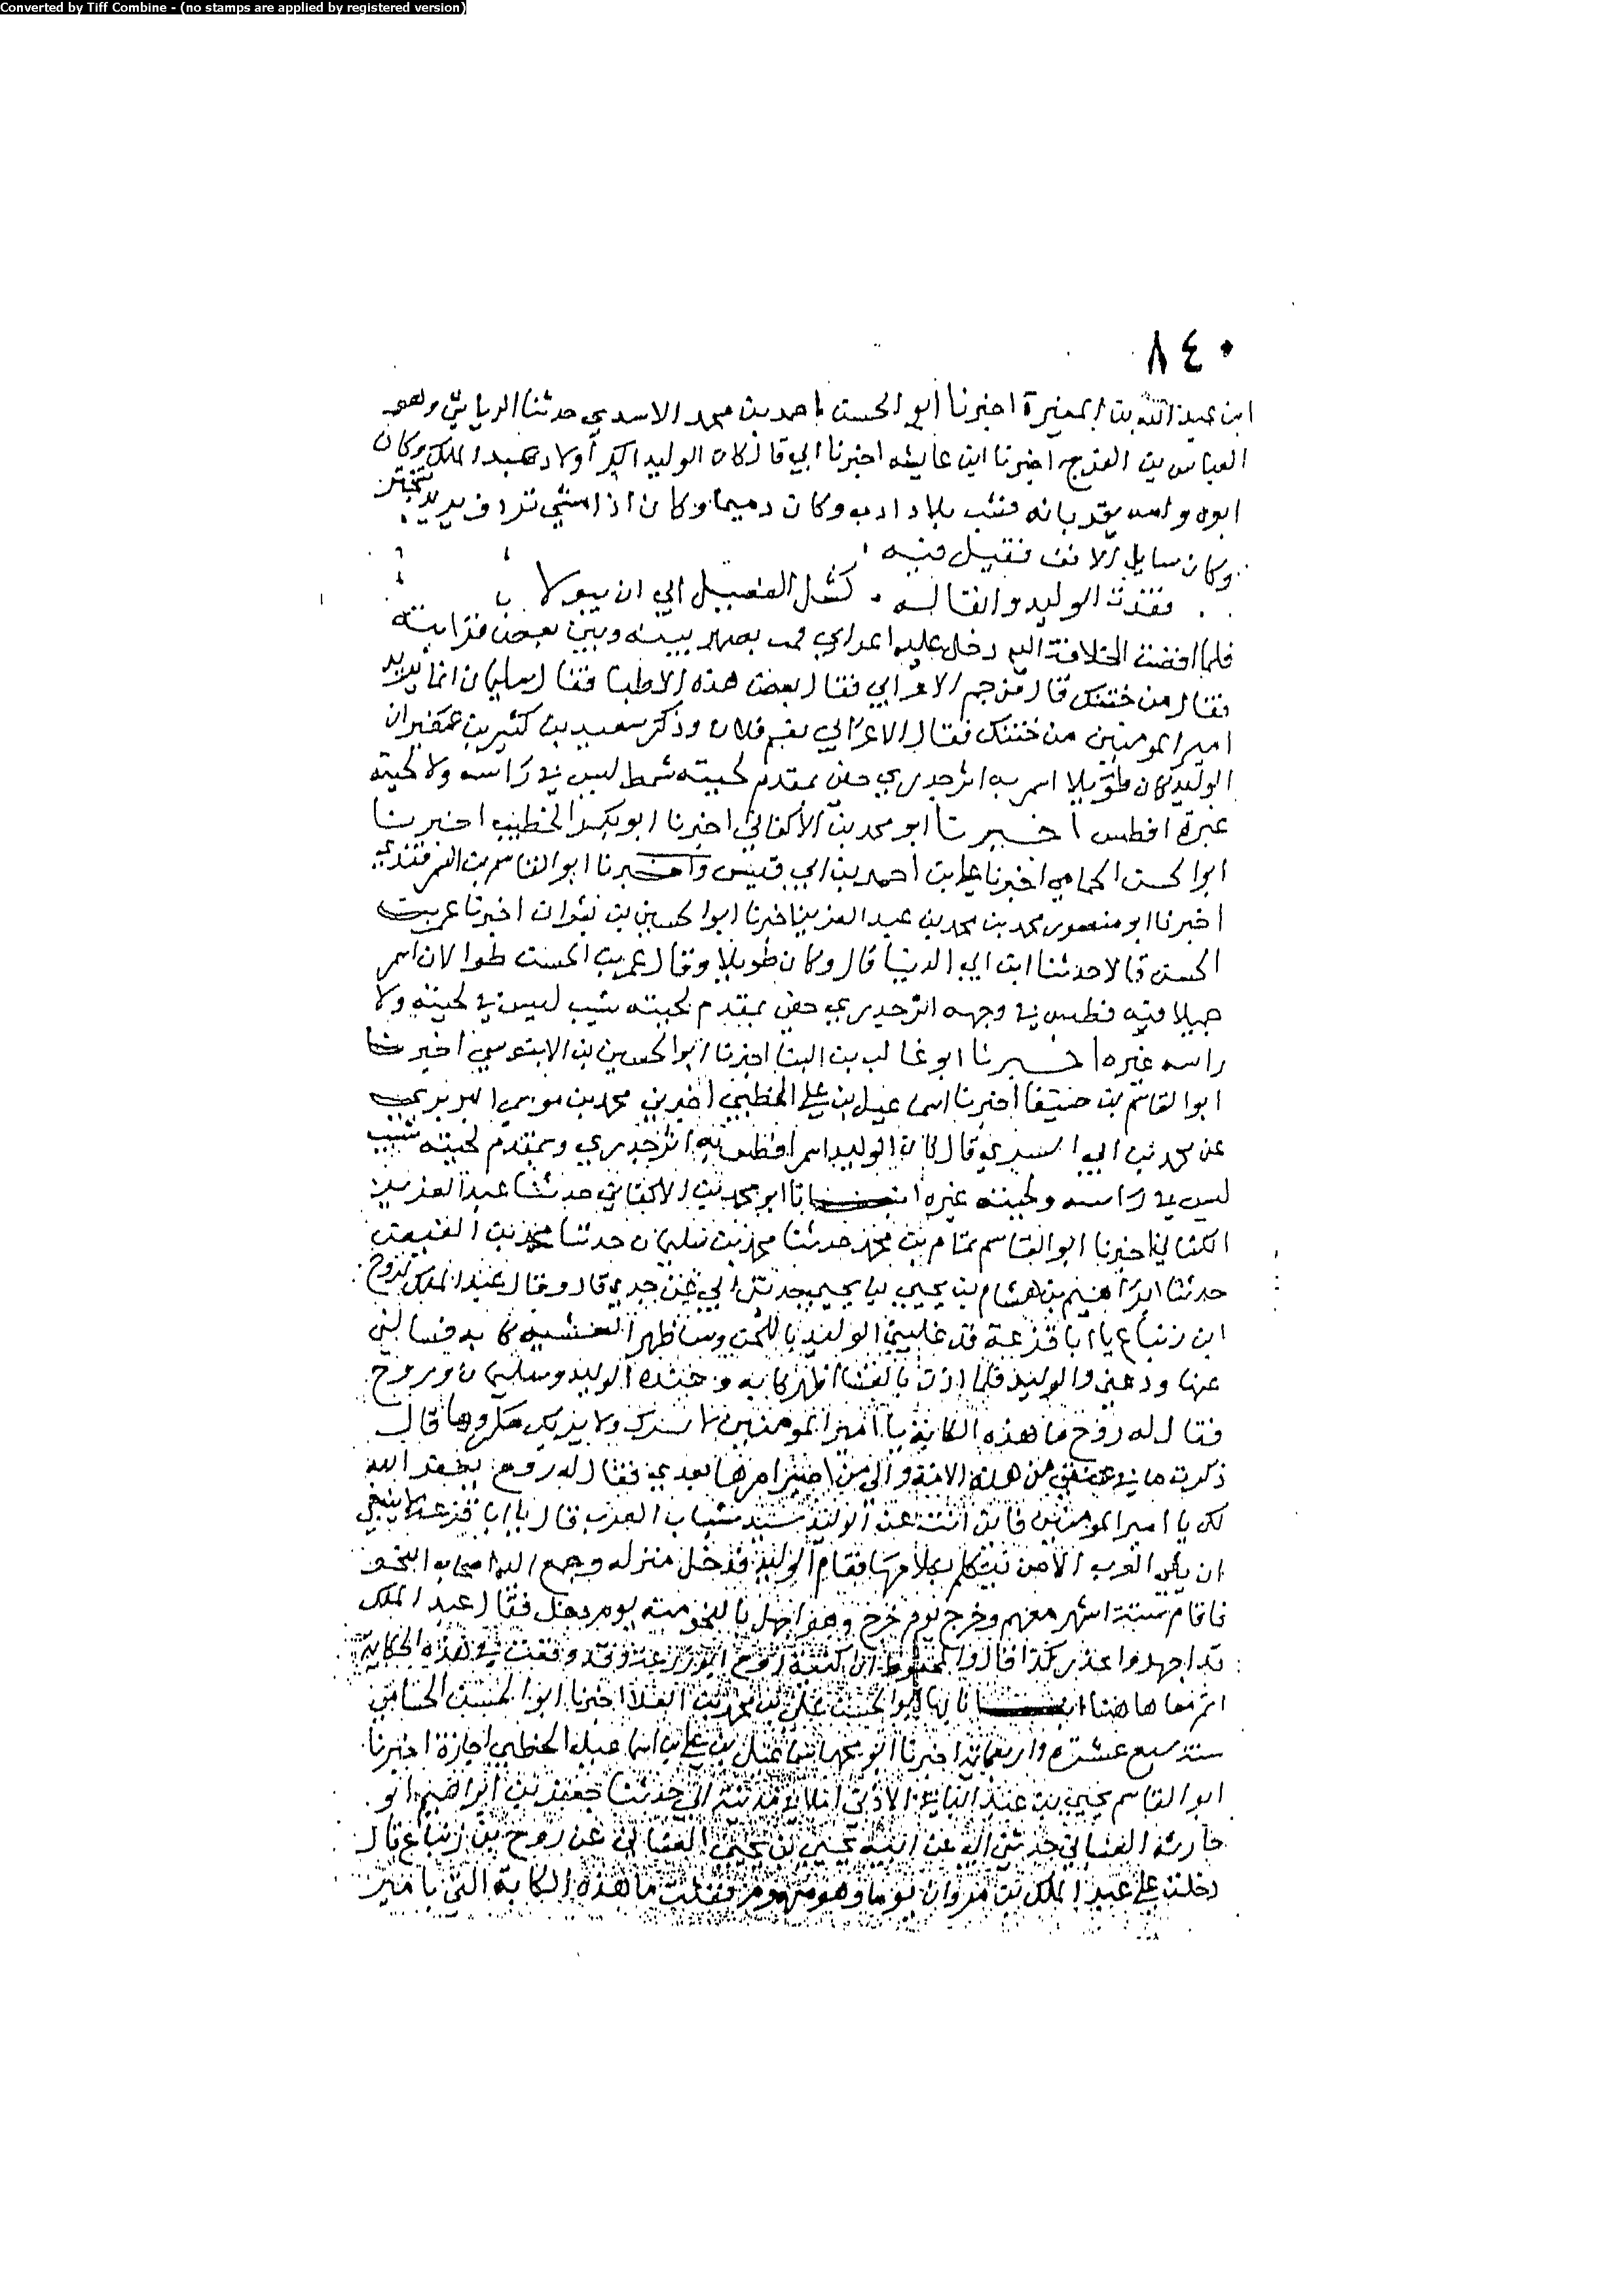 Converted by Tiff Combine - (no stamps are applied by registered version)
٨٤٠
ابن عبد الله بن المغيرة اخبرنا ابو الحسن احمد بن محمد الاسدي حدثنا الرياشي وهو
العباس بن الفرج اخبرنا ابن عايشه اخبرنا ابي قال كان الوليد اكبر أولاد عبد الملك وكان
ابوه وامه يقربانه فشب بلا ادب وكان دميما وكان اذا مشي
وكان سايل الانف فقيل فيه
فقدت الوليد وانفا له كمثل الفصيل ابي ان يبولا
فلما افضت الخلافة اليه دخل عليه اعرابي فمت بصهر بينه وبين بعض قرابته
فقال من ختنك قال الاعرابي فقال بعض هذه الاطبا فقال سليمان انما يريد
امير المومنين من ختنك فقال الاعرابي نعم فلان وذكر سعيد بن كثير بن عفير ان
الوليد كان طويلا اسمر به اثر جدري خفي بمقدم لحيته شمط ليس في راسه ولا لحيته
غيره افطس اخبرنا ابو محمد بن الاكفاني اخبرنا ابو بكر الخطيب اخبرنا
ابو الحسن الحمامي اخبرنا علي بن احمد بن ابي قيس واخبرنا ابو القاسم بن السمرقندي
اخبرنا ابو منصور محمد بن محمد بن عبد العزيز اخبرنا ابو الحسين بن بشران اخبرنا عمر بن
الحسن قالا حدثنا ابن ابي الدنيا قال وكان طويلا وقال عمر بن الحسن طوالا اسمر
جميلا فيه فطس في وجهه اثر جدري خفي بمقدم لحيته شيب ليس في لحيته ولا
راسه غيره اخبرنا ابو غالب بن البنا اخبرنا ابو الحسين بن الابنوسي اخبرنا
ابو القاسم بن اخبرنا اسماعيل بن علي الخطبي اخبرني محمد بن موسي البربري
عن محمد بن ابي السري قال كان الوليد اسمر افطس به اثر جدري وبمقدم لحيته شيب
ليس في راسه ولحيته غيره انبانا ابو محمد بن الاكفاني حدثنا عبد العزيز
الكتاني اخبرنا ابو القاسم تمام بن محمد حدثنا محمد بن سليمان حدثنا محمد بن الفيض
حدثنا ابراهيم بن هشام بن يحيي بن يحيي حدثني ابي عن جدي قال وقال عبد الملك لروح
ابن زنباع يا ابا قد غلبني الوليد باللحن وساظهر العشية كابه فسالني
عنها ودعني والوليد فلما اظهر كابه وعنده الوليد وسليمان وروح
فقال له روح ما هذه الكابة يا امير المومنين لا ولا يريك مكروها قال
ذكرت ما في عنقي من هذه الامة والي من اصير امرها بعدي فقال له روح يغفر الله
لك يا امير المومنين فاين انت عن الوليد سيد شباب العرب قال يا ابا لا ينبغي
ان يلي العرب الا من يتكلم بكلامها فقام الوليد فدخل منزله وجمع اليه اصحاب النحو
فاقام ستة اشهر معهم وخرج يوم خرج وهو اجهل بالنحو منه يوم دخل فقال عبد الملك
قد اجهدوا قالوا المحفوظ ان كنية روح ابو زرعة وقد وقعت لي هذه الحكاية
اتم مما هاهنا انبانا بها ابو الحسن علي بن محمد بن العلا اخبرنا ابو الحسن الحمامي
سنة سبع عشره واربعمائة اخبرنا ابو محمد اسماعيل بن علي بن اسماعيل الخطبي اجازة اخبرنا
ابو القاسم يحيي بن عبد الباقي حدثنا جعفر بن ابراهيم ابو
حارثة الغساني حدثني ابي عن ابيه يحيي بن يحيي الغساني عن روح بن زنباع قال
دخلت علي عبد الملك بن مروان يوما وهو مهموم فقلت ما هذه الكابة التي بامير